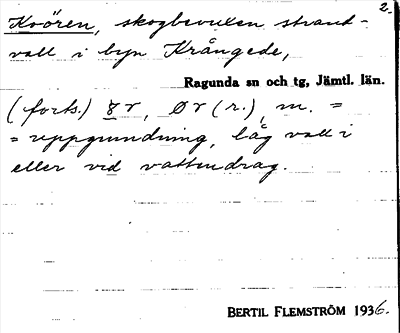 2.
Kvören, skogbevuxen strand-
vall i byn Krångede,
Ragunda sn och tg, Jämtl. län.
(forts.) ɤr, Ør (r.), m. =
= uppgrundning, låg vall i
eller vid vattendrag.
BERTIL FLEMSTRÖM 1936.